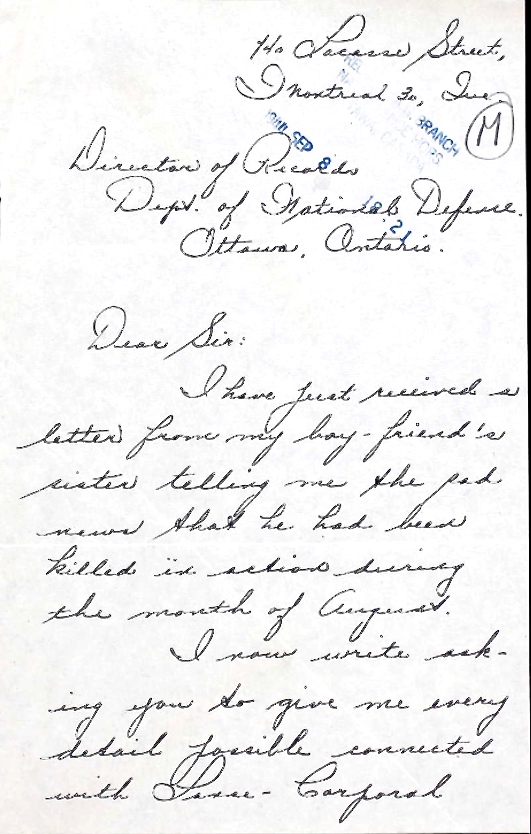 740 Lacasse Street,
Montreal 30, Que.
BRANCH
M
SEP 8
Director of Records
18 21
Dept. of National Defense.
Ottawa, Ontario.
Dear Sir:
I have just received a
letter from my boy-friend's
sister telling me the sad
news that he had been
killed in action during
the month of August.
I now write ask-
ing you to give me every
detail possible connected
with Lance-Corporal